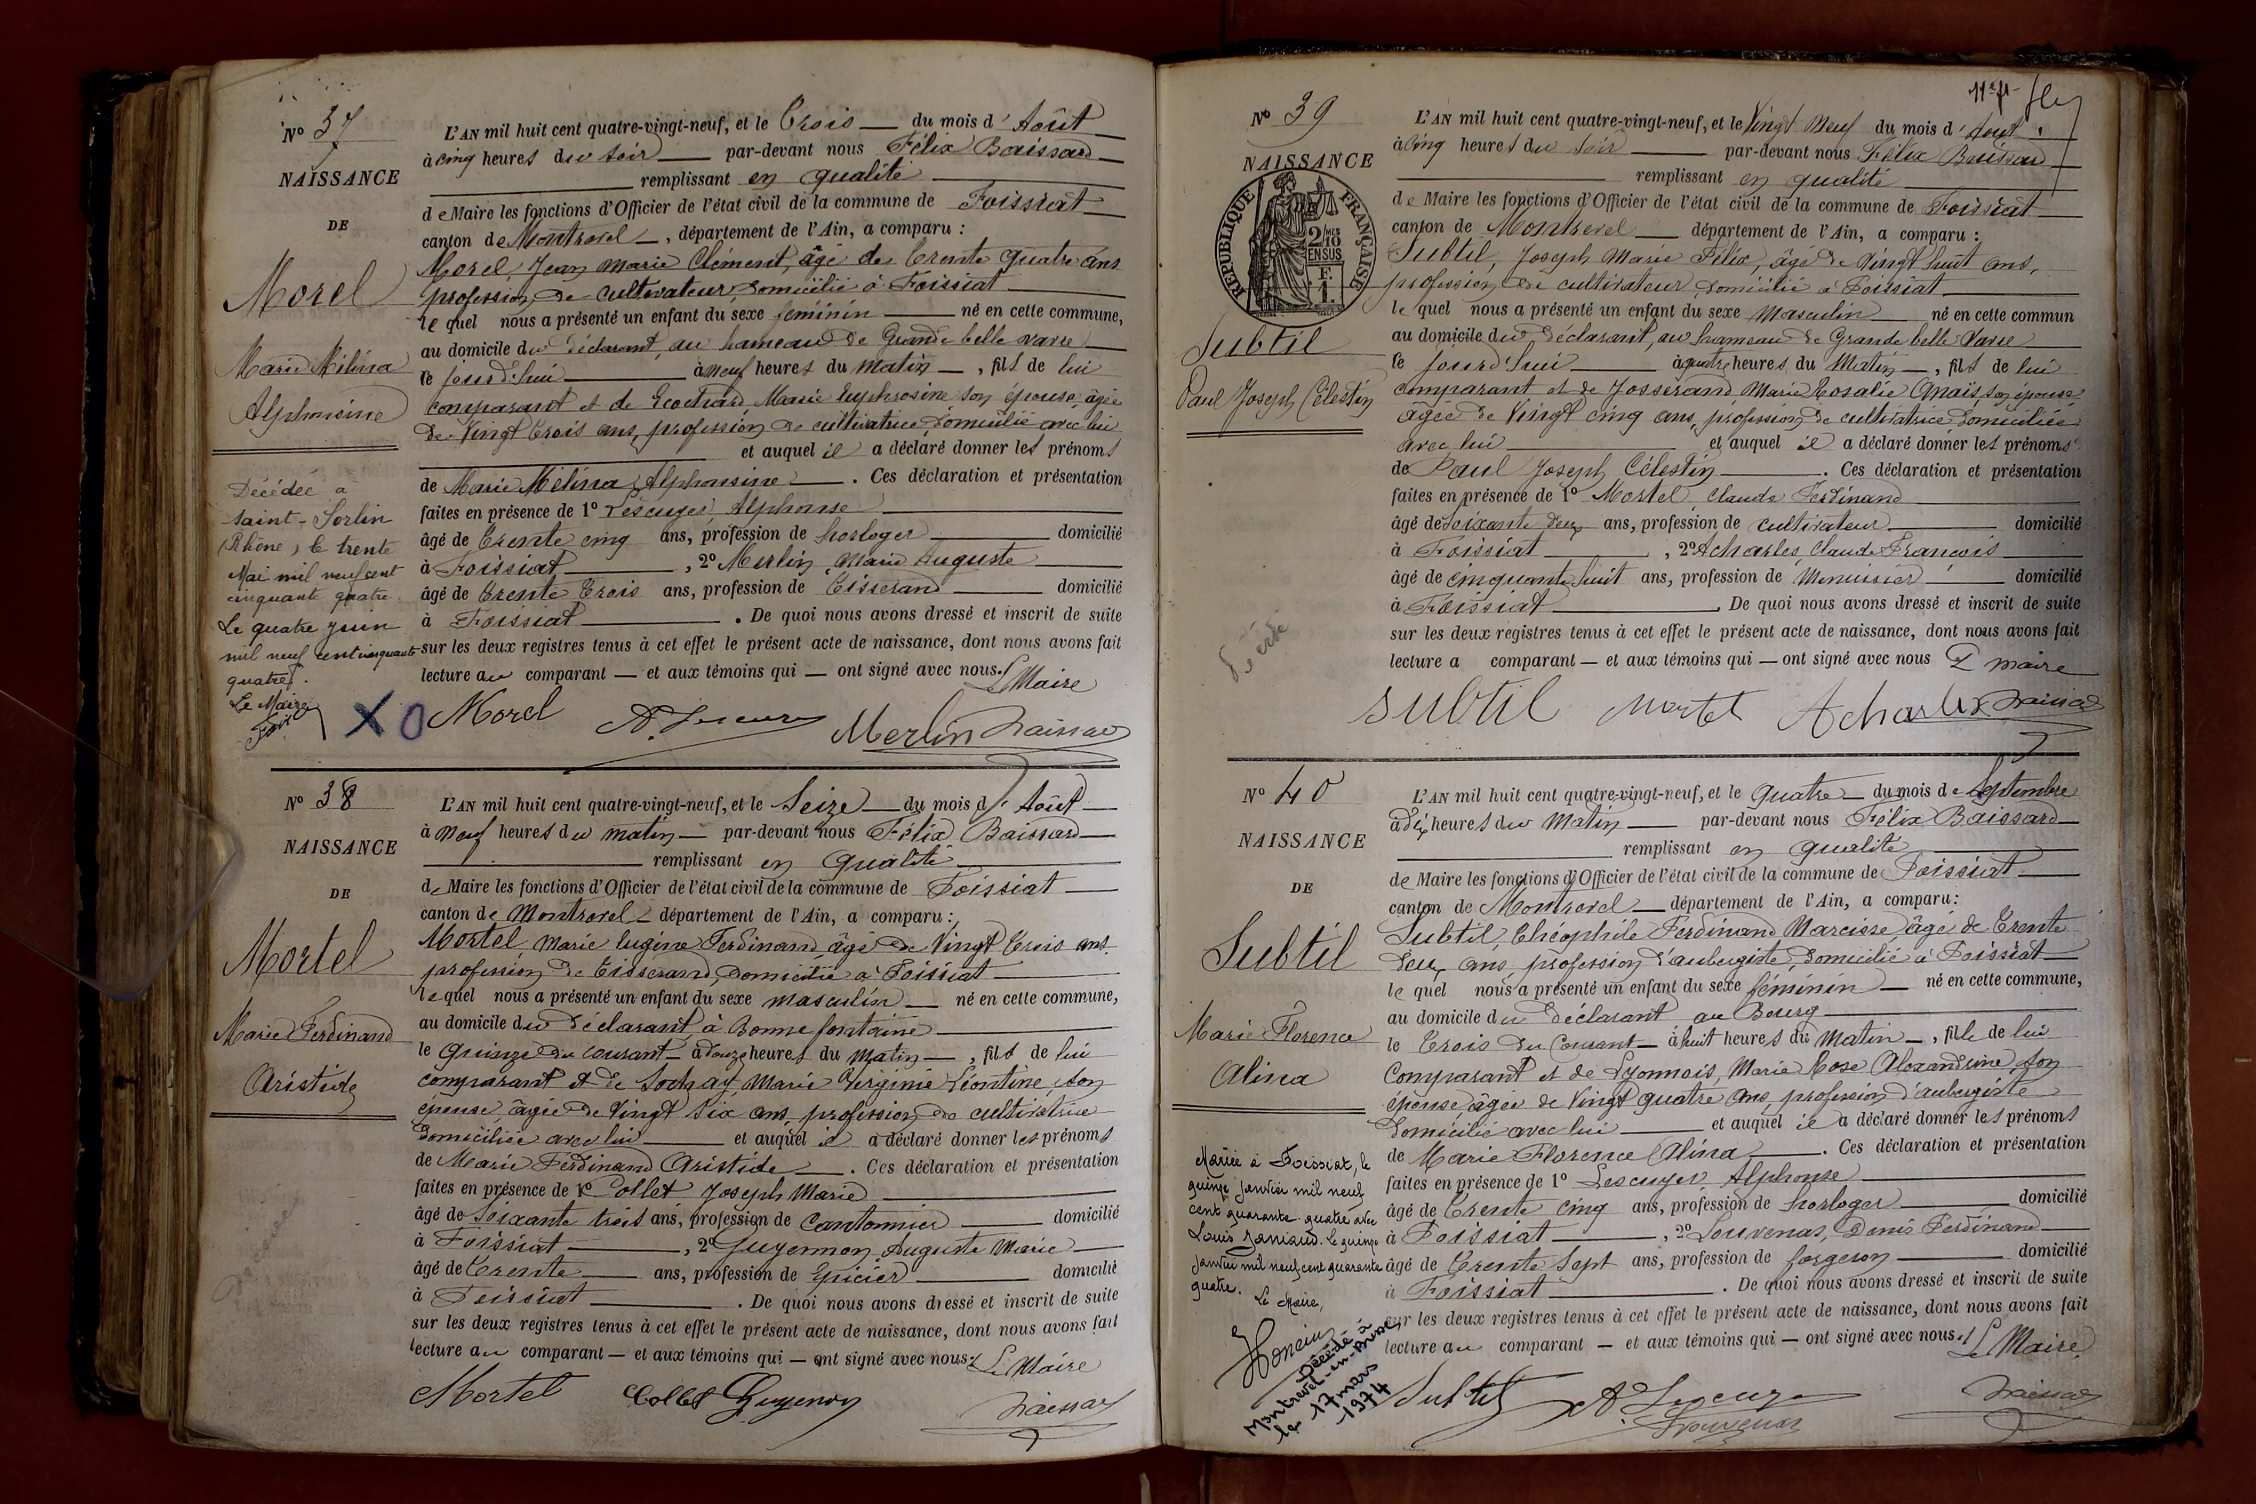 No 37
NAISSANCE
DE
Morel
Marie Mélina
Alphonsine
Décédée a
Saint-Sorlin
(Rhône) le trente
Mai mil neuf cent
cinquante quatre.
Le quatre juin
mil neuf cent cinquante
quatre.
Le Maire
L'AN mil huit cent quatre-vingt-neuf, et le Trois — du mois d'Août
à cinq heures du soir — par-devant nous Félix Baissard
remplissant en qualité
de Maire les fonctions d'Officier de l'état civil de la commune de Foissiat
canton de Montrevel —, département de l'Ain, a comparu :
Morel, Jean Marie Clément, âgé de trente quatre ans
profession de cultivateur, domicilié à Foissiat
le quel nous a présenté un enfant du sexe féminin — né en cette commune,
au domicile du déclarant, au hameau de Grande belle varre
le jourd'hui — à neuf heures du matin —, fils de lui
comparant et de Ecochard, Marie Euphrosine son épouse, âgée
de Vingt trois ans, profession de cultivatrice, domicilié avec lui
et auquel il a déclaré donner les prénoms
de Marie Mélina Alphonsine — . Ces déclaration et présentation
faites en présence de 1º Lescuyer, Alphonse
âgé de trente cinq ans, profession de horloger — domicilié
à Foissiat —, 2º Merlin, Marie Auguste
âgé de trente trois ans, profession de Tisserand — domicilié
à Foissiat — . De quoi nous avons dressé et inscrit de suite
sur les deux registres tenus à cet effet le présent acte de naissance, dont nous avons fait
lecture au comparant — et aux témoins qui — ont signé avec nous. Le Maire
X O Morel A. Lescuyer Merlin Baissard
No 38
NAISSANCE
DE
Mortel
Marie Ferdinand
Aristide
L'AN mil huit cent quatre-vingt-neuf, et le Seize — du mois d'Août
à neuf heures du matin — par-devant nous Félix Baissard
remplissant en qualité
de Maire les fonctions d'Officier de l'état civil de la commune de Foissiat
canton de Montrevel — département de l'Ain, a comparu :
Mortel, Marie Eugène Ferdinand, âgé de Vingt trois ans
profession de Tisserand, domicilié à Foissiat
le quel nous a présenté un enfant du sexe masculin — né en cette commune,
au domicile du déclarant, à Bonne fontaine
le quinze du courant — à douze heures du matin —, fils de lui
comparant et de Sochay, Marie Virginie Léontine, son
épouse, âgée de Vingt six ans, profession de cultivatrice
domiciliée avec lui — et auquel il a déclaré donner les prénoms
de Marie Ferdinand Aristide — . Ces déclaration et présentation
faites en présence de 1º Collet Joseph Marie
âgé de soixante trois ans, profession de Cantonnier — domicilié
à Foissiat —, 2º Guyennon Auguste Marie
âgé de trente — ans, profession de Epicier — domicilié
à Foissiat — . De quoi nous avons dressé et inscrit de suite
sur les deux registres tenus à cet effet le présent acte de naissance, dont nous avons fait
lecture au comparant — et aux témoins qui — ont signé avec nous. Le Maire
Mortel Collet Guyennon Baissard
No 39
NAISSANCE
RÉPUBLIQUE FRANÇAISE
2/10 EN SUS
1 F.
Subtil
Paul Joseph Célestin
L'AN mil huit cent quatre-vingt-neuf, et le Vingt Neuf du mois d'Aout
à cinq heures du soir — par-devant nous Félix Baissard
remplissant en qualité
de Maire les fonctions d'Officier de l'état civil de la commune de Foissiat
canton de Montrevel — département de l'Ain, a comparu :
Subtil, Joseph Marie Félix, âgé de Vingt huit ans,
profession de cultivateur, domicilié à Foissiat
le quel nous a présenté un enfant du sexe masculin — né en cette commun
au domicile du déclarant, au hameau de Grande belle Varre
le jourd'hui — à quatre heures du Matin —, fils de lui
comparant et de Josserand, Marie Rosalie Anaïs, son épouse
âgée de Vingt cinq ans, profession de cultivatrice domiciliée
avec lui — et auquel il a déclaré donner les prénoms
de Paul Joseph Célestin — . Ces déclaration et présentation
faites en présence de 1º Mortel, Claude Ferdinand
âgé de soixante deux ans, profession de cultivateur — domicilié
à Foissiat —, 2º Acharles, Claude François
âgé de cinquante huit ans, profession de Menuisier — domicilié
à Foissiat — . De quoi nous avons dressé et inscrit de suite
sur les deux registres tenus à cet effet le présent acte de naissance, dont nous avons fait
lecture a comparant — et aux témoins qui — ont signé avec nous Le maire
Subtil Mortel Acharles Baissard
No 40
NAISSANCE
DE
Subtil
Marie Florence
Alina
Mariée à Foissiat, le
quinze janvier mil neuf
cent quarante-quatre avec
Louis Janiaud. Le quinze
janvier mil neuf cent quarante
quatre.
Le Maire,
Décédée à
Montrevel-en-Bresse
le 17 mars
1974
L'AN mil huit cent quatre-vingt-neuf, et le quatre — du mois de Septembre
à dix heures du Matin — par-devant nous Félix Baissard
remplissant en qualité
de Maire les fonctions d'Officier de l'état civil de la commune de Foissiat
canton de Montrevel — département de l'Ain, a comparu :
Subtil, Théophile Ferdinand Narcisse, âgé de trente
deux ans, profession d'aubergiste, domicilié à Foissiat
le quel nous a présenté un enfant du sexe féminin — né en cette commune,
au domicile du déclarant au Bourg
le trois du Courant — à huit heures du Matin —, fille de lui
Comparant et de Lyonnais, Marie Rose Alexandrine, son
épouse, âgée de Vingt quatre ans, profession d'aubergiste
domicilié avec lui — et auquel il a déclaré donner les prénoms
de Marie Florence Alina — . Ces déclaration et présentation
faites en présence de 1º Lescuyer Alphonse
âgé de trente cinq ans, profession de horloger — domicilié
à Foissiat —, 2º Louvenas, Denis Ferdinand
âgé de trente Sept ans, profession de forgeron — domicilié
à Foissiat — . De quoi nous avons dressé et inscrit de suite
sur les deux registres tenus à cet effet le présent acte de naissance, dont nous avons fait
lecture au comparant — et aux témoins qui — ont signé avec nous. Le Maire
Subtil A. Lescuyer Baissard
Louvenas